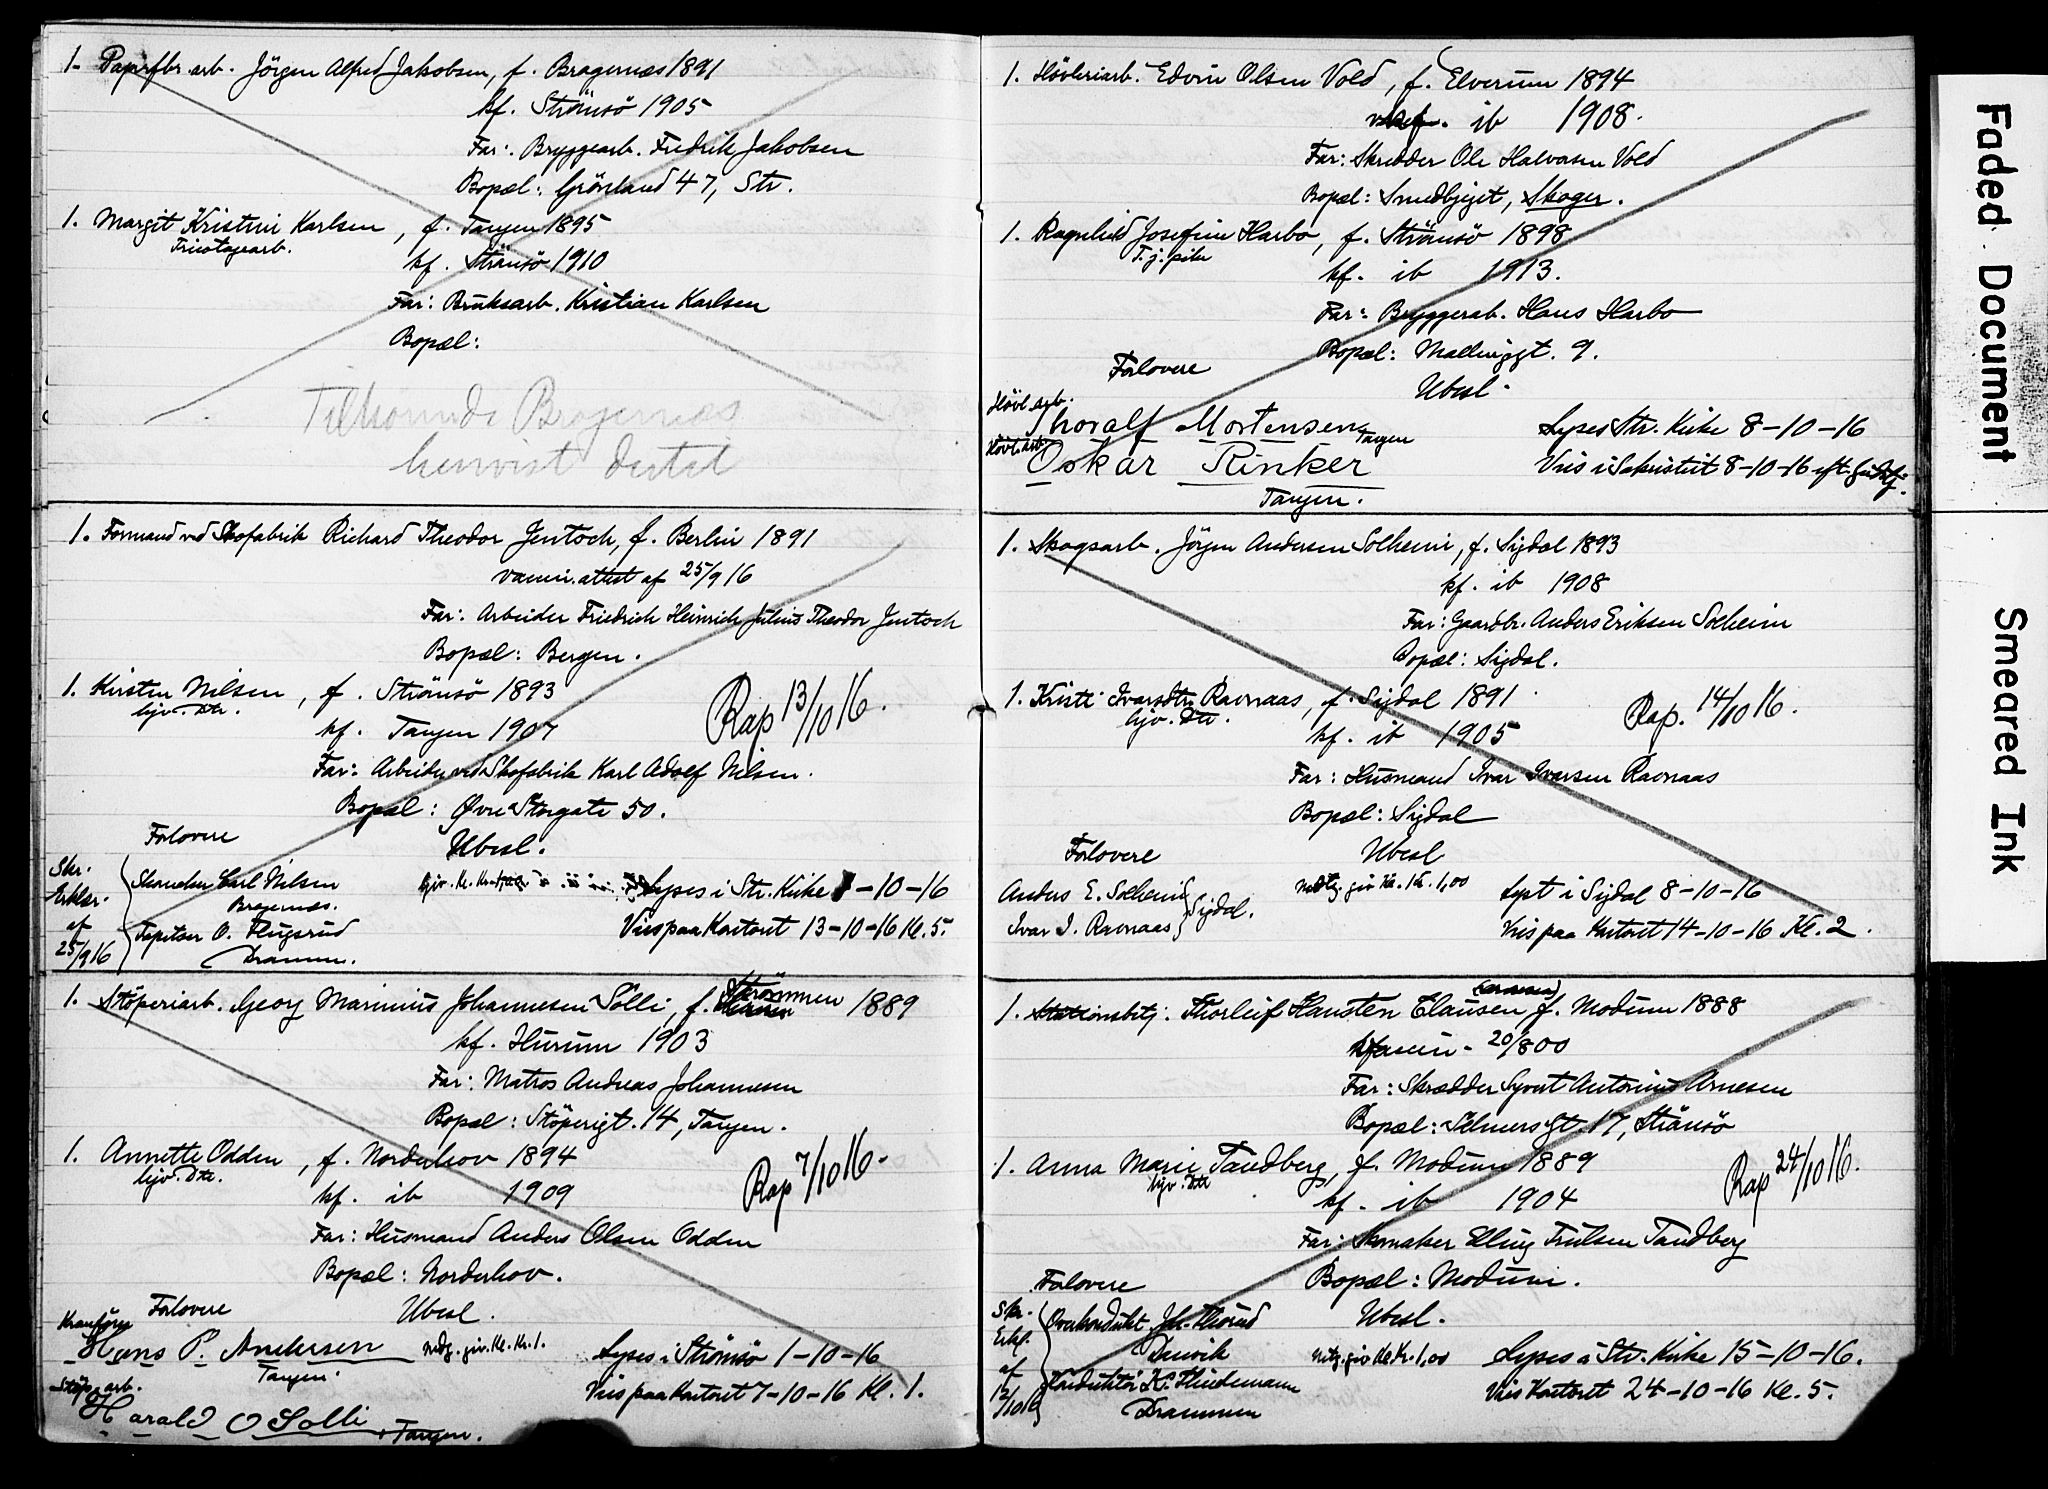 1. Papirfbr. arb. Jörgen Alfred Jakobsen, f. Bragernæs 1891
kf. Strömsö 1905
Far: Bryggearb. Fredrik Jakobsen
Bopæl: Grönland 47, Str.
1. Margit Kristine Karlsen, f. Tangen 1895
Tricotagearb.
kf. Strömsö 1910
Far: Bruksarb. Kristian Karlsen
Bopæl:
Tilkommende Bragernæs
henvist dertil
1. Formand ved Skofabrik Richard Theodor Jentoch, f. Berlin 1891
vaccin. attest af 25/9 16
Far: Arbeider Friedrich Heinrich Julius Theodor Jentoch
Bopæl: Bergen.
1. Kirsten Nilsen, f. Strömsö 1893
hjv. Dtr.
kf. Tangen 1907
Rap 13/10 16.
Far: Arbeider ved Skofabrik Karl Adolf Nilsen.
Bopæl: Øvre Storgate 50.
Forlovere
Ubesl.
Skr. Erklær. af 25/9 16
Skomaker Carl Nilsen
Bragernæs.
Lyses i Str. Kirke 1-10-16
Tapetser O. Flugsrud
Drammen.
Vies paa Kontoret 13-10-16 Kl. 5.
1. Støperiarb. Georg Marinius Johannesen Solli, f. Strömmen 1889
kf. Hurum 1903
Far: Matros Andreas Johannesen
Bopæl: Stöperigt. 14, Tangen.
1. Annette Odden, f. Norderhov 1894
hjv. Dtr.
kf. ib 1909
Rap 7/10 16.
Far: Husmand Anders Olsen Odden
Bopæl: Norderhov.
Forlovere
Ubesl.
Kranförer
Hans P. Andersen
Tangen.
ndg. giv. Kl. Kr. 1.
Lyses i Strömsö 1-10-16
Støp. arb.
Harald O Solli, Tangen.
Vies paa Kontoret 7-10-16 Kl. 1.
1. Høvleriarb. Edvin Olsen Vold, f. Elverum 1894
ib 1908.
Far: Skredder Ole Halvorsen Vold
Bopæl: Smedbjeget, Skoger.
1. Ragnhild Josefine Harbo, f. Strömsö 1898
T. j. pike
kf. ib 1913.
Far: Bryggerarb. Hans Harbo
Bopæl: Mallinggt. 9.
Forlovere
Ubesl.
Høvl. arb.
Thoralf Mortensen, Tangen
Lyses Str. Kirke 8-10-16
Høvl. Arb.
Oskar Rinker
Tangen.
Vies i Sakristiet 8-10-16 eft. Gudstj.
1. Skogsarb. Jörgen Andersen Solheim, f. Sigdal 1893
kf. ib 1908
Far: Gaardbr. Anders Eriksen Solheim
Bopæl: Sigdal.
1. Kristi Ivarsdtr. Ravnaas, f. Sigdal 1891
hjv. Dtr.
kf. ib 1905
Rap. 14/10 16.
Far: Husmand Ivar Iversen Ravnaas
Bopæl: Sigdal
Forlovere
Ubesl
Anders E. Solheim
Ivar I. Ravnaas
Sigdal.
ndtg. giv Kl. Kr. 1,00
Lyst i Sigdal 8-10-16
Vies paa Kontoret 14-10-16 Kl. 2.
1. Stationsbetj. Thorleif Hansten Clausen (Arnesen), f. Modum 1888
20/8 00
Far: Skrædder Syvert Antonius Arnesen
Bopæl: Schwersgt. 17, Strömsö
1. Anna Marie Tandberg, f. Modum 1889
hjv. Dtr
kf. ib 1904
Rap 24/10 16.
Far: Skomaker Elling Trulsen Tandberg
Bopæl: Modum.
Forlovere
Ubesl.
Skr. Erkl. af 12/10 16
Overkondukt. Joh. Thorud
Danvik
ndtg. giv Kl Kr. 1,00
Lyses i Str. Kirke 15-10-16.
Konduktör K. Thiedemann
Drammen
Vies Kontoret 24-10-16 Kl. 5.
Faded Document
Smeared Ink